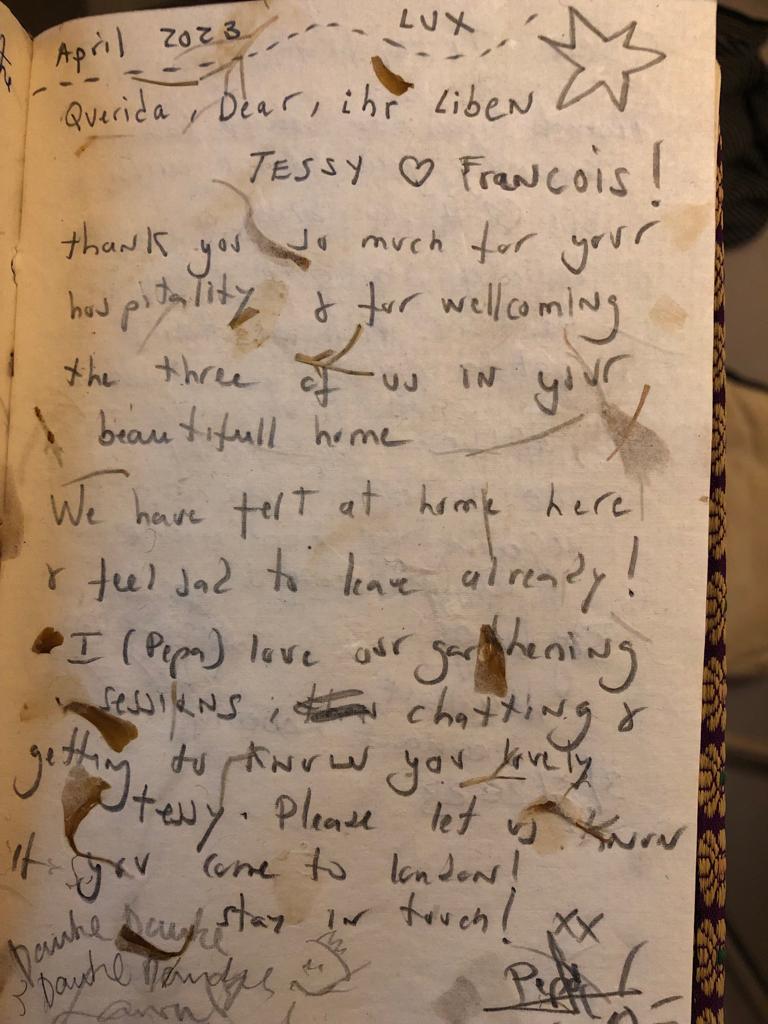 April 2023 LUX
Querida, Dear, ihr Liben
TESSY ♡ Francois!
thank you so much for your
hospitality & for wellcoming
the three of us in your
beautifull home
We have felt at home here
& feel sad to leave already!
I (Pepa) love our garthening
sessions, chatting &
getting to know you lovely
tessy. Please let us know
if you come to london!
stay in touch! xx
Danke Danke
Danke
Pepa